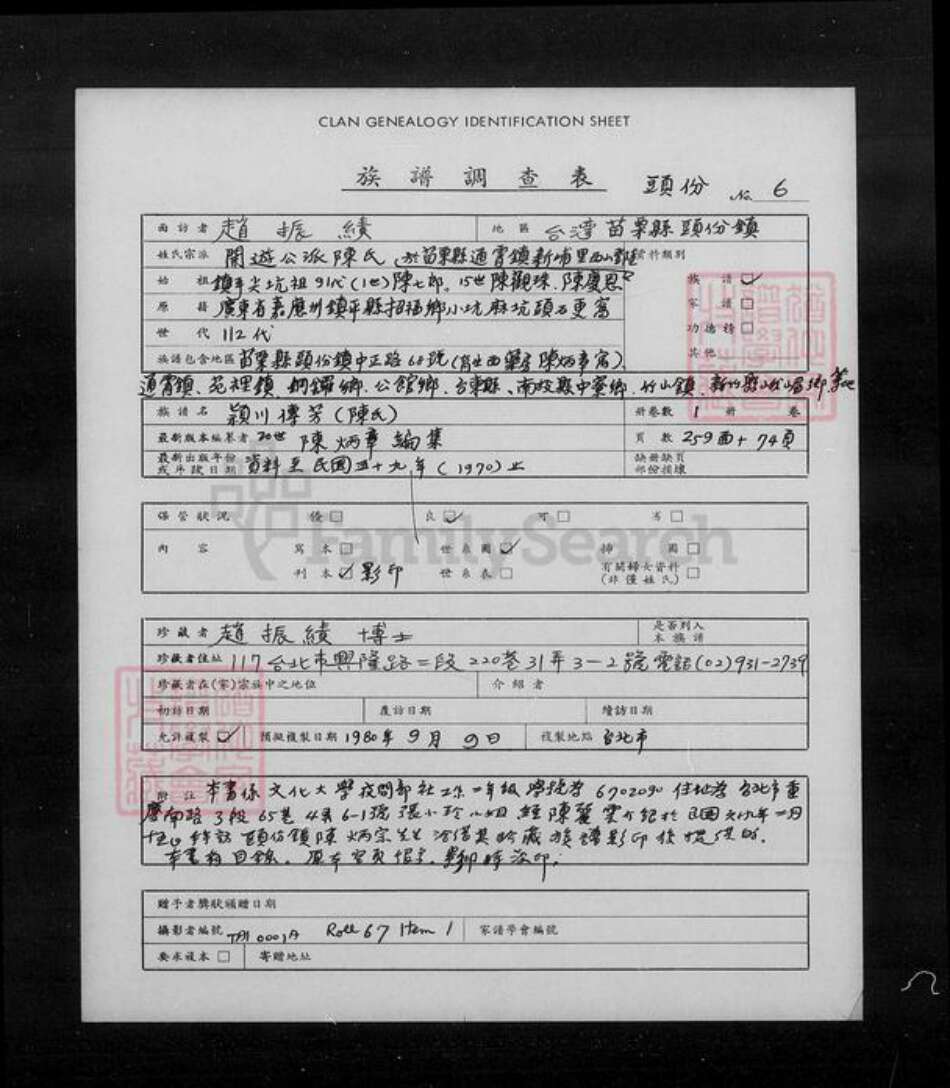 CLAN GENEALOGY IDENTIFICATION SHEET
族譜調查表 頭份 No. 6
面訪者 趙振績 地區 台灣苗栗縣頭份鎮
姓氏宗派 開遊公派陳氏 於苗栗縣通霄鎮新埔里 資料類別
始祖 鎮平尖坑祖91代(1世)陳七郎、15世陳觀珠、陳慶恩 族譜 ☑
原籍 廣東省嘉應州鎮平縣招福鄉小坑麻坑頭石更寓 家譜 □
世代 112代 功德榜 □
族譜包含地區 苗栗縣頭份鎮中正路68號(陳炳章寓)、 其他
通霄鎮、苑裡鎮、銅鑼鄉、公館鄉、台東縣、南投縣中寮鄉、竹山鎮、新竹縣峨眉鄉
族譜名 穎川傳芳(陳氏) 冊卷數 1 冊 卷
最新版本編纂者 20世 陳炳章編集 頁數 259面+74頁
最新出版年份或年譜日期 資料至民國五十九年(1970)止 缺冊缺頁部份損壞
FamilySearch
保管狀況 優 □ 良 ☑ 可 □ 劣 □
內容 寫本 □ 世系圖 ☑ 掃圖 □
刊本 ☑ 影印 世系表 □ 有關婦女資料(非僅姓氏) □
珍藏者 趙振績 博士 是否別入本族譜
珍藏者住址 117台北市興隆路二段220巷31弄3-2號 電話(02)931-2739
珍藏者在(宗)宗族中之地位 介紹者
初訪日期 覆訪日期 續訪日期
允許複製 ☑ 預擬複製日期 1980年9月9日 複製地點 台北市
附注 本書係文化大學夜間部社工系一年級學號為6702090住址為台北市重
慶南路3段65巷4弄6-1號張小玲小姐經陳麗雲介紹於民國六十九年一月
拜訪頭份鎮陳炳宗先生洽借其珍藏族譜影印後提供的。
本書有目錄。
贈予者獎狀頒贈日期
攝影者編號 TAI 0001A Roll 67 Item 1 家譜學會編號
要求複本 □ 寄贈地址